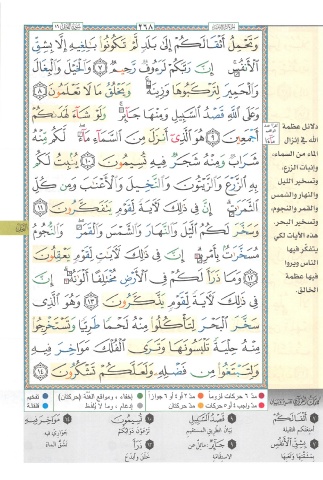 ٢٦٨
وَتَحْمِلُ أَثْقَالَكُمْ إِلَىٰ بَلَدٍ لَّمْ تَكُونُوا۟ بَٰلِغِيهِ إِلَّا بِشِقِّ
ٱلْأَنفُسِ ۚ إِنَّ رَبَّكُمْ لَرَءُوفٌ رَّحِيمٌ ٧ وَٱلْخَيْلَ وَٱلْبِغَالَ
وَٱلْحَمِيرَ لِتَرْكَبُوهَا وَزِينَةً ۚ وَيَخْلُقُ مَا لَا تَعْلَمُونَ ٨
وَعَلَى ٱللَّهِ قَصْدُ ٱلسَّبِيلِ وَمِنْهَا جَآئِرٌ ۚ وَلَوْ شَآءَ لَهَدَىٰكُمْ
أَجْمَعِينَ ٩ هُوَ ٱلَّذِىٓ أَنزَلَ مِنَ ٱلسَّمَآءِ مَآءً ۖ لَّكُم مِّنْهُ
شَرَابٌ وَمِنْهُ شَجَرٌ فِيهِ تُسِيمُونَ ١٠ يُنۢبِتُ لَكُم
بِهِ ٱلزَّرْعَ وَٱلزَّيْتُونَ وَٱلنَّخِيلَ وَٱلْأَعْنَٰبَ وَمِن كُلِّ
ٱلثَّمَرَٰتِ ۗ إِنَّ فِى ذَٰلِكَ لَءَايَةً لِّقَوْمٍ يَتَفَكَّرُونَ ١١
وَسَخَّرَ لَكُمُ ٱلَّيْلَ وَٱلنَّهَارَ وَٱلشَّمْسَ وَٱلْقَمَرَ ۖ وَٱلنُّجُومُ
مُسَخَّرَٰتٌۢ بِأَمْرِهِۦٓ ۗ إِنَّ فِى ذَٰلِكَ لَءَايَٰتٍ لِّقَوْمٍ يَعْقِلُونَ
١٢ وَمَا ذَرَأَ لَكُمْ فِى ٱلْأَرْضِ مُخْتَلِفًا أَلْوَٰنُهُۥٓ ۗ إِنَّ
فِى ذَٰلِكَ لَءَايَةً لِّقَوْمٍ يَذَّكَّرُونَ ١٣ وَهُوَ ٱلَّذِى
سَخَّرَ ٱلْبَحْرَ لِتَأْكُلُوا۟ مِنْهُ لَحْمًا طَرِيًّا وَتَسْتَخْرِجُوا۟
مِنْهُ حِلْيَةً تَلْبَسُونَهَا وَتَرَى ٱلْفُلْكَ مَوَاخِرَ فِيهِ
وَلِتَبْتَغُوا۟ مِن فَضْلِهِۦ وَلَعَلَّكُمْ تَشْكُرُونَ ١٤
دلائل عظمة
الله في إنزال
الماء من السماء،
وإنبات الزرع،
وتسخير الليل
والنهار والشمس
والقمر والنجوم،
وتسخير البحر.
هذه الآيات لكي
يتفكر فيها
الناس ويروا
فيها عظمة
الخالق.
مد ٦ حركات لزوما
مد ٢ أو ٤ أو ٦ جوازا
إخفاء، ومواقع الغنة (حركتان)
تفخيم
مد واجب ٤ أو ٥ حركات
مد حركتان
إدغام، وما لا يلفظ
قلقلة
أَثْقَالَكُمْ
قَصْدُ السَّبِيلِ
تُسِيمُونَ
مَوَاخِرَ فِيهِ
بِشِقِّ الْأَنفُسِ
جَائِرٌ
ذَرَأَ